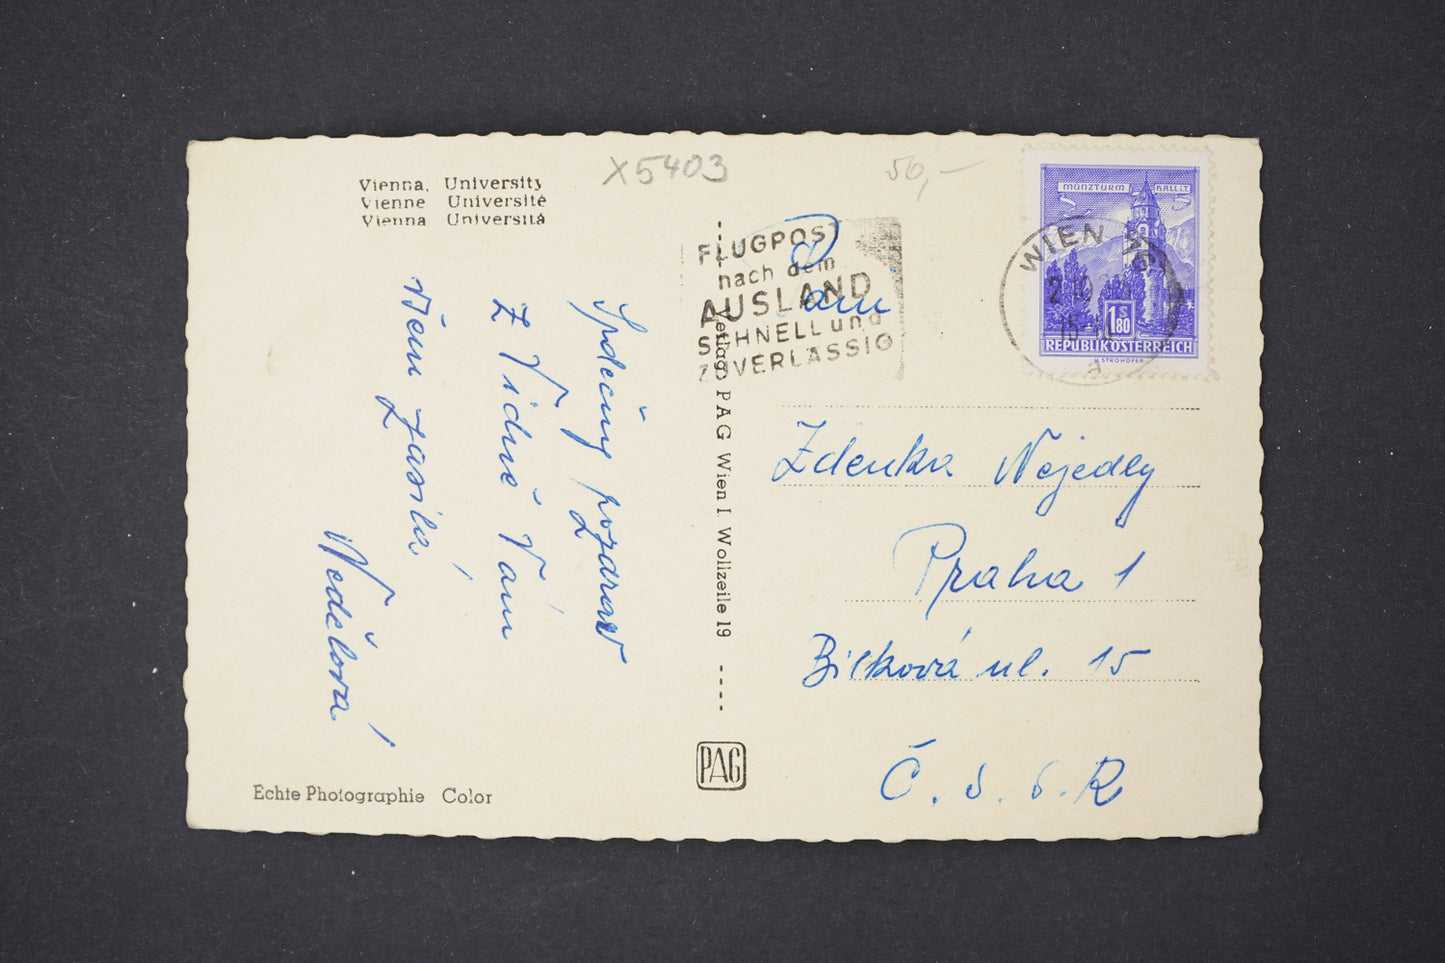 Vienna, University
Vienne Université
Vienna Università
X5403
50,-
Srdečný pozdrav
z Vídně Vám
všem zasílá
Nedělová
Echte Photographie Color
Verlag PAG Wien I Wollzeile 19
PAG
FLUGPOST
nach dem
AUSLAND
SCHNELL und
ZUVERLÄSSIG
MÜNZTURM HALL i.T.
S
1.80
REPUBLIK ÖSTERREICH
H. STROHOFER
WIEN
Zdenka Nejedly
Praha 1
Bílková ul. 15
Č.S.S.R